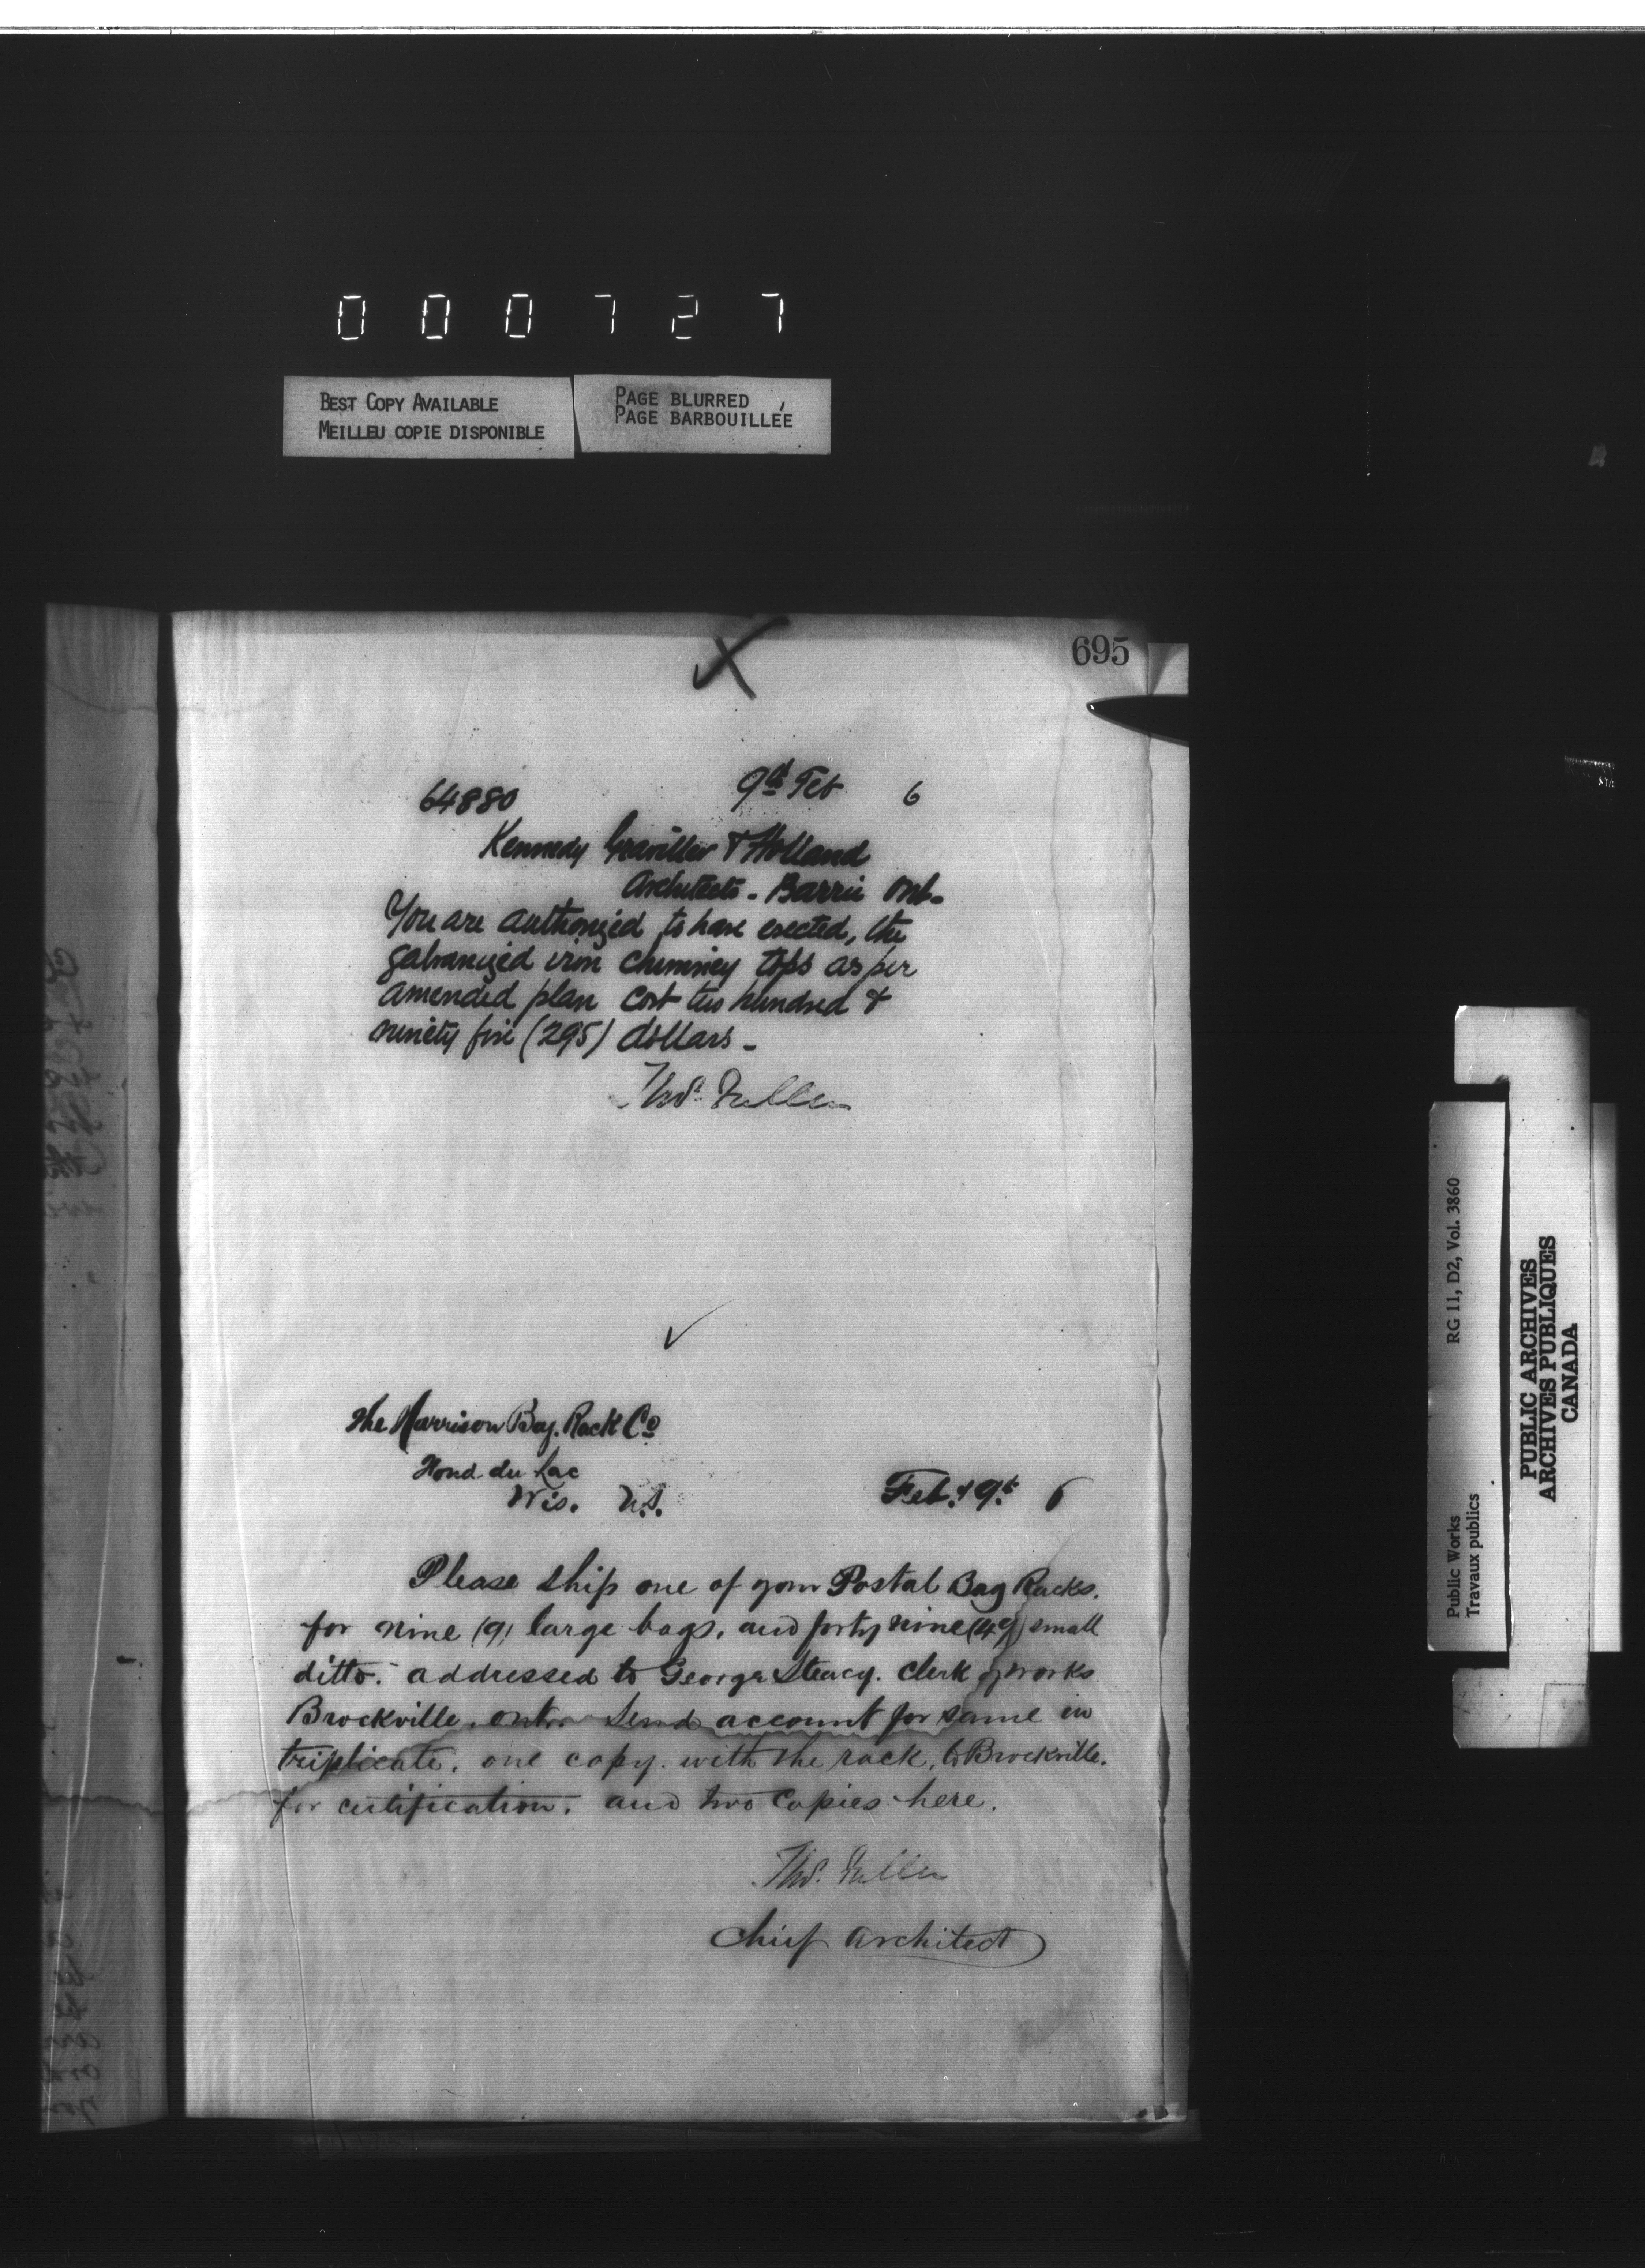 000727
BEST COPY AVAILABLE
MEILLEU COPIE DISPONIBLE
PAGE BLURRED
PAGE BARBOUILLÉE
695
64880 9th Feb 6
Kennedy Gaviller & Holland
Architects - Barrie Ont-
You are authorized to have erected, the
galvanized iron chimney tops as per
amended plan cost two hundred &
ninety five (295) dollars -
Thos. Fuller
The Harrison Bag. Rack Co
Fond du Lac
Wis. U.S. Feb. 9th 6
Please ship one of your Postal Bag Racks.
for nine (9) large bags, and forty nine (49) small
ditto. addressed to George Steacy. Clerk of works
Brockville, onto. Send account for same in
triplicate, one copy. with the rack, to Brockville.
for certification. and two Copies here.
Thos. Fuller
Chief Architect
RG 11, D2, Vol. 3860
Public Works
Travaux publics
PUBLIC ARCHIVES
ARCHIVES PUBLIQUES
CANADA